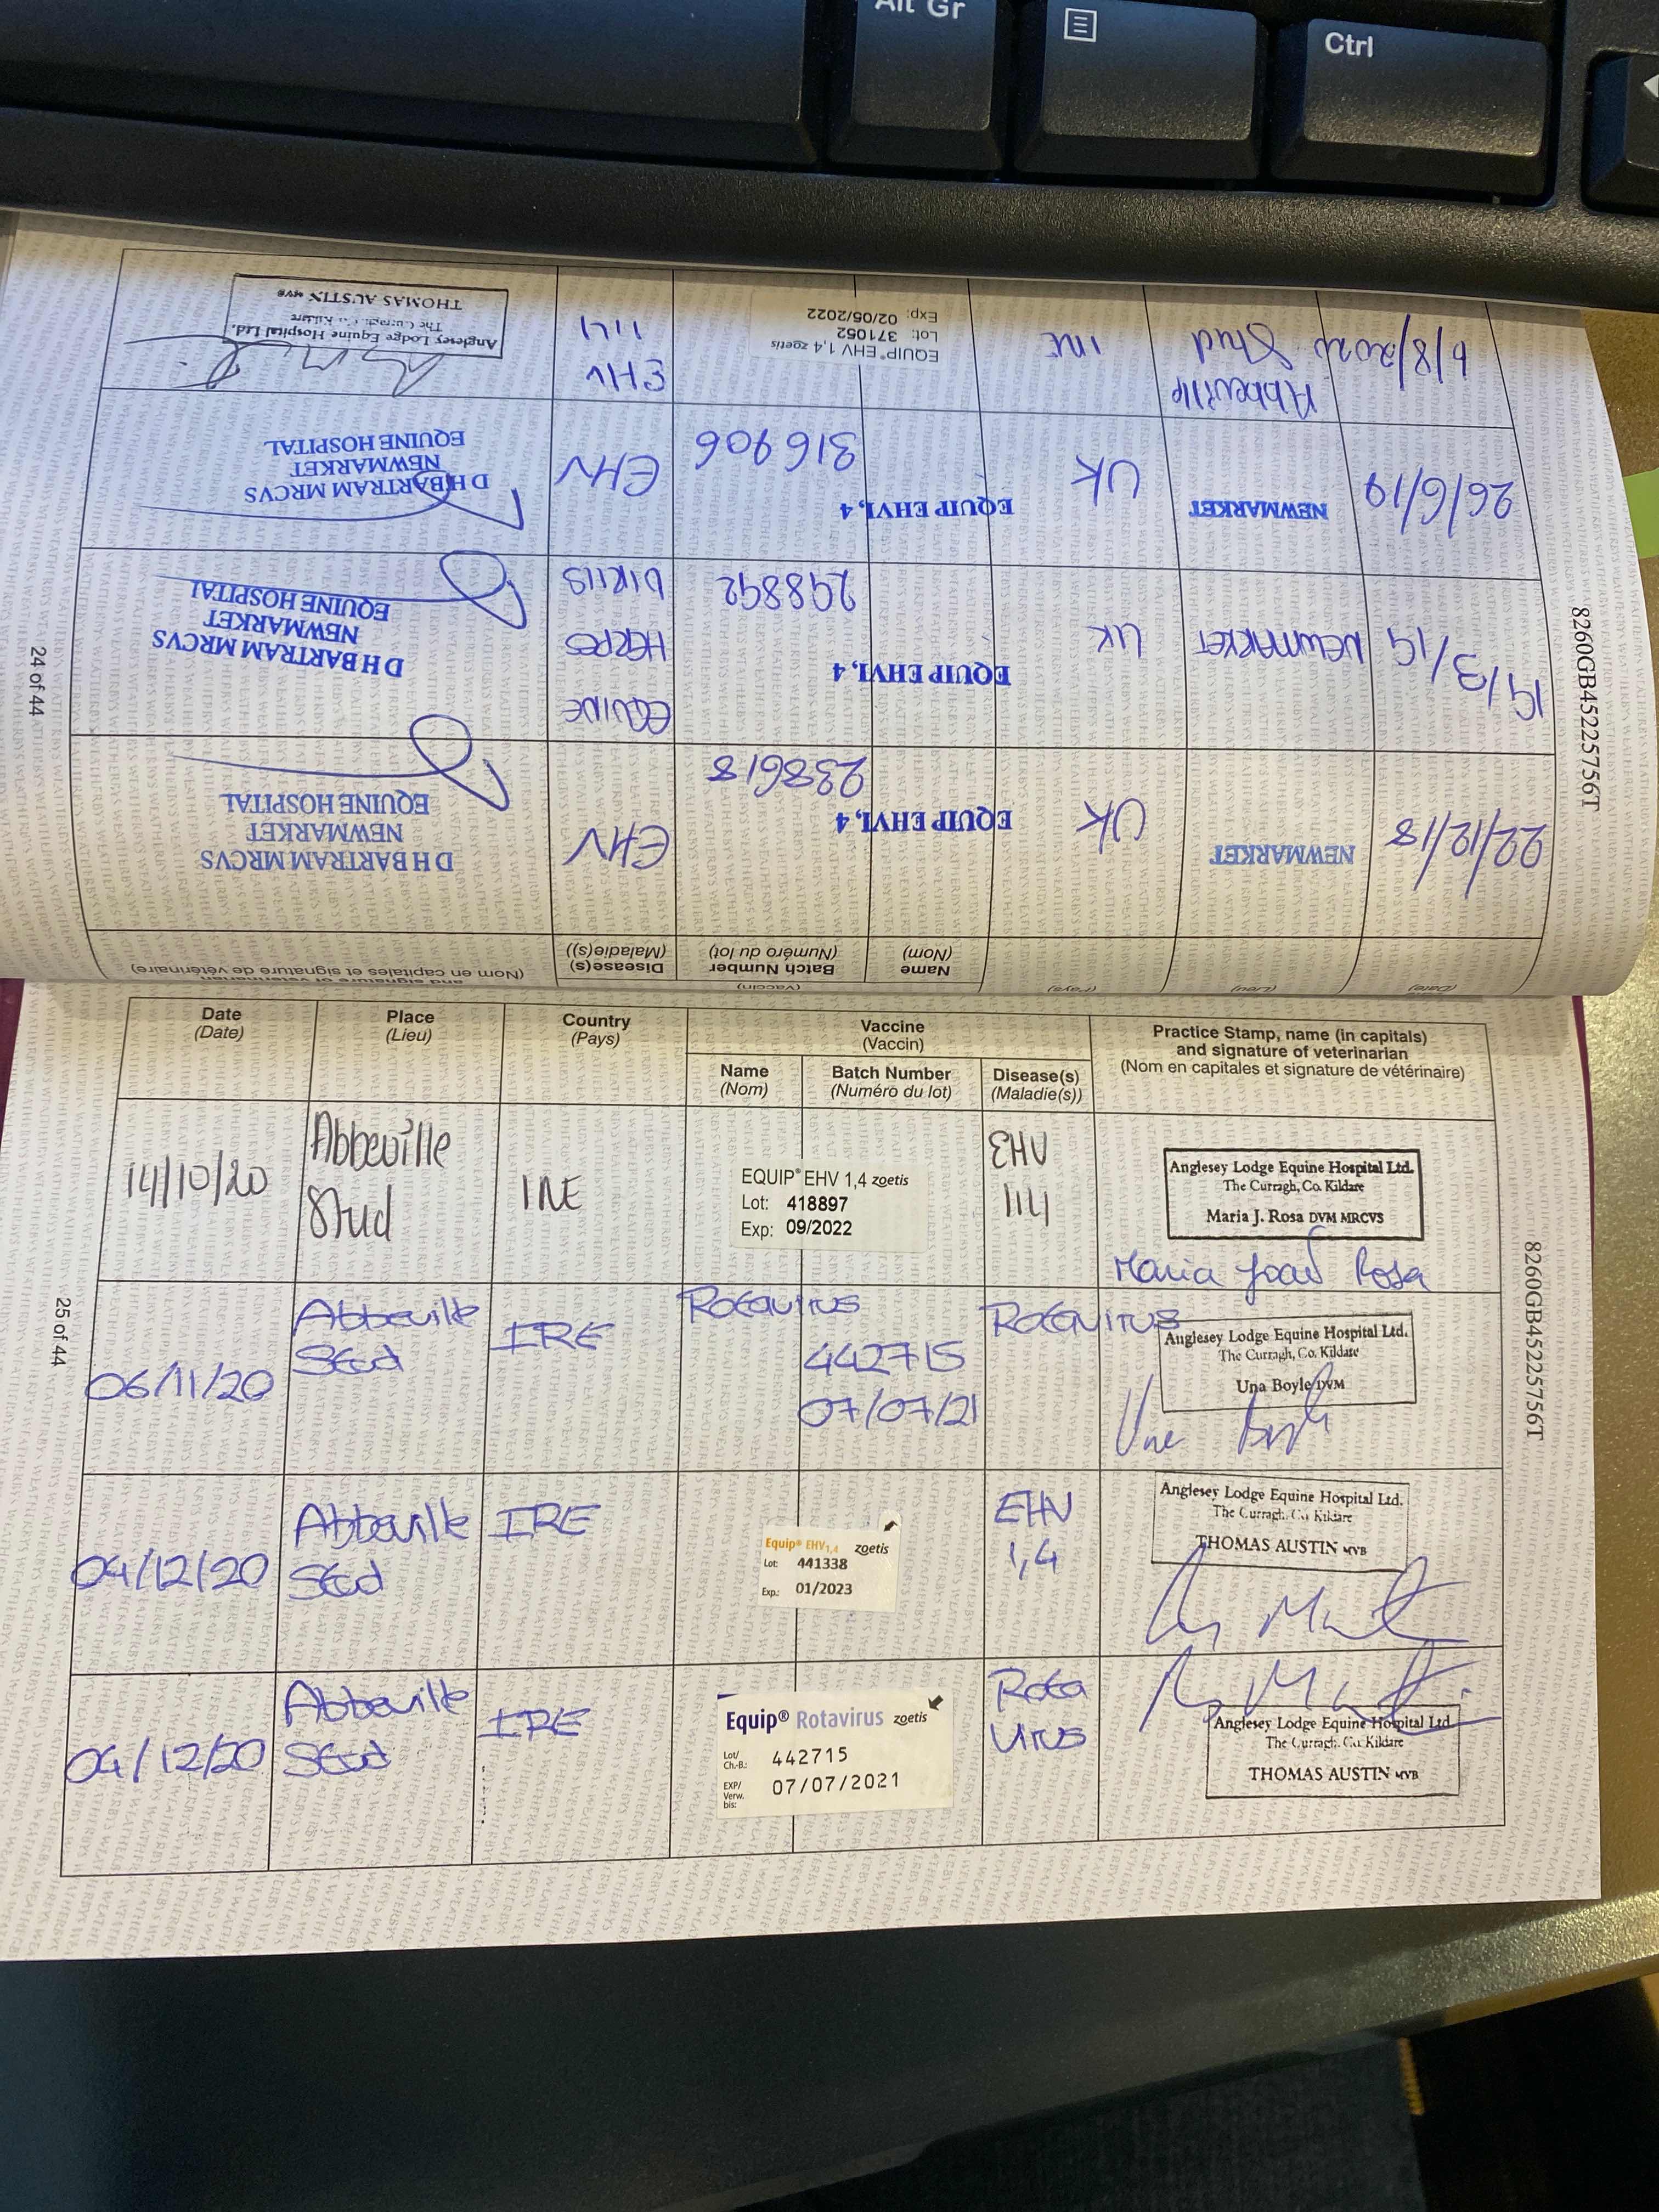 Alt Gr
Ctrl
(Date)
(Lieu)
(Pays)
(Vaccin)
and signature of veterinarian
(Nom en capitales et signature de vétérinaire)
Name
(Nom)
Batch Number
(Numéro du lot)
Disease(s)
(Maladie(s))
22/12/18
NEWMARKET
UK
EQUIP EHV1,4
238618
EHV
D H BARTRAM MRCVS
NEWMARKET
EQUINE HOSPITAL
19/3/19
NEWMARKET
UK
EQUIP EHV1,4
298892
EQUINE
HERPES
VIRUS
D H BARTRAM MRCVS
NEWMARKET
EQUINE HOSPITAL
26/6/19
NEWMARKET
UK
EQUIP EHV1,4
316906
EHV
D H BARTRAM MRCVS
NEWMARKET
EQUINE HOSPITAL
6/8/2020
Abbeville
Stud
IRE
EQUIP® EHV 1,4 zoetis
Lot: 371052
Exp: 02/05/2022
EHV
1,4
Anglesey Lodge Equine Hospital Ltd.
The Curragh, Co. Kildare
THOMAS AUSTIN MVB
8260GB45225756T
24 of 44
Date
(Date)
Place
(Lieu)
Country
(Pays)
Vaccine
(Vaccin)
Name
(Nom)
Batch Number
(Numéro du lot)
Disease(s)
(Maladie(s))
Practice Stamp, name (in capitals)
and signature of veterinarian
(Nom en capitales et signature de vétérinaire)
14/10/20
Abbeville
Stud
IRE
EQUIP® EHV 1,4 zoetis
Lot: 418897
Exp: 09/2022
EHV
1,4
Anglesey Lodge Equine Hospital Ltd.
The Curragh, Co. Kildare
Maria J. Rosa DVM MRCVS
Maria João Rosa
06/11/20
Abbeville
Stud
IRE
Rotavirus
442715
07/07/21
Rotavirus
Anglesey Lodge Equine Hospital Ltd.
The Curragh, Co. Kildare
Una Boyle DVM
Una Boyle
04/12/20
Abbeville
Stud
IRE
Equip® EHV1,4 zoetis
Lot: 441338
Exp.: 01/2023
EHV
1,4
Anglesey Lodge Equine Hospital Ltd.
The Curragh, Co. Kildare
THOMAS AUSTIN MVB
04/12/20
Abbeville
Stud
IRE
Equip® Rotavirus zoetis
Lot/
Ch.-B.: 442715
EXP/
Verw.
bis: 07/07/2021
Rota
virus
Anglesey Lodge Equine Hospital Ltd.
The Curragh, Co. Kildare
THOMAS AUSTIN MVB
8260GB45225756T
25 of 44